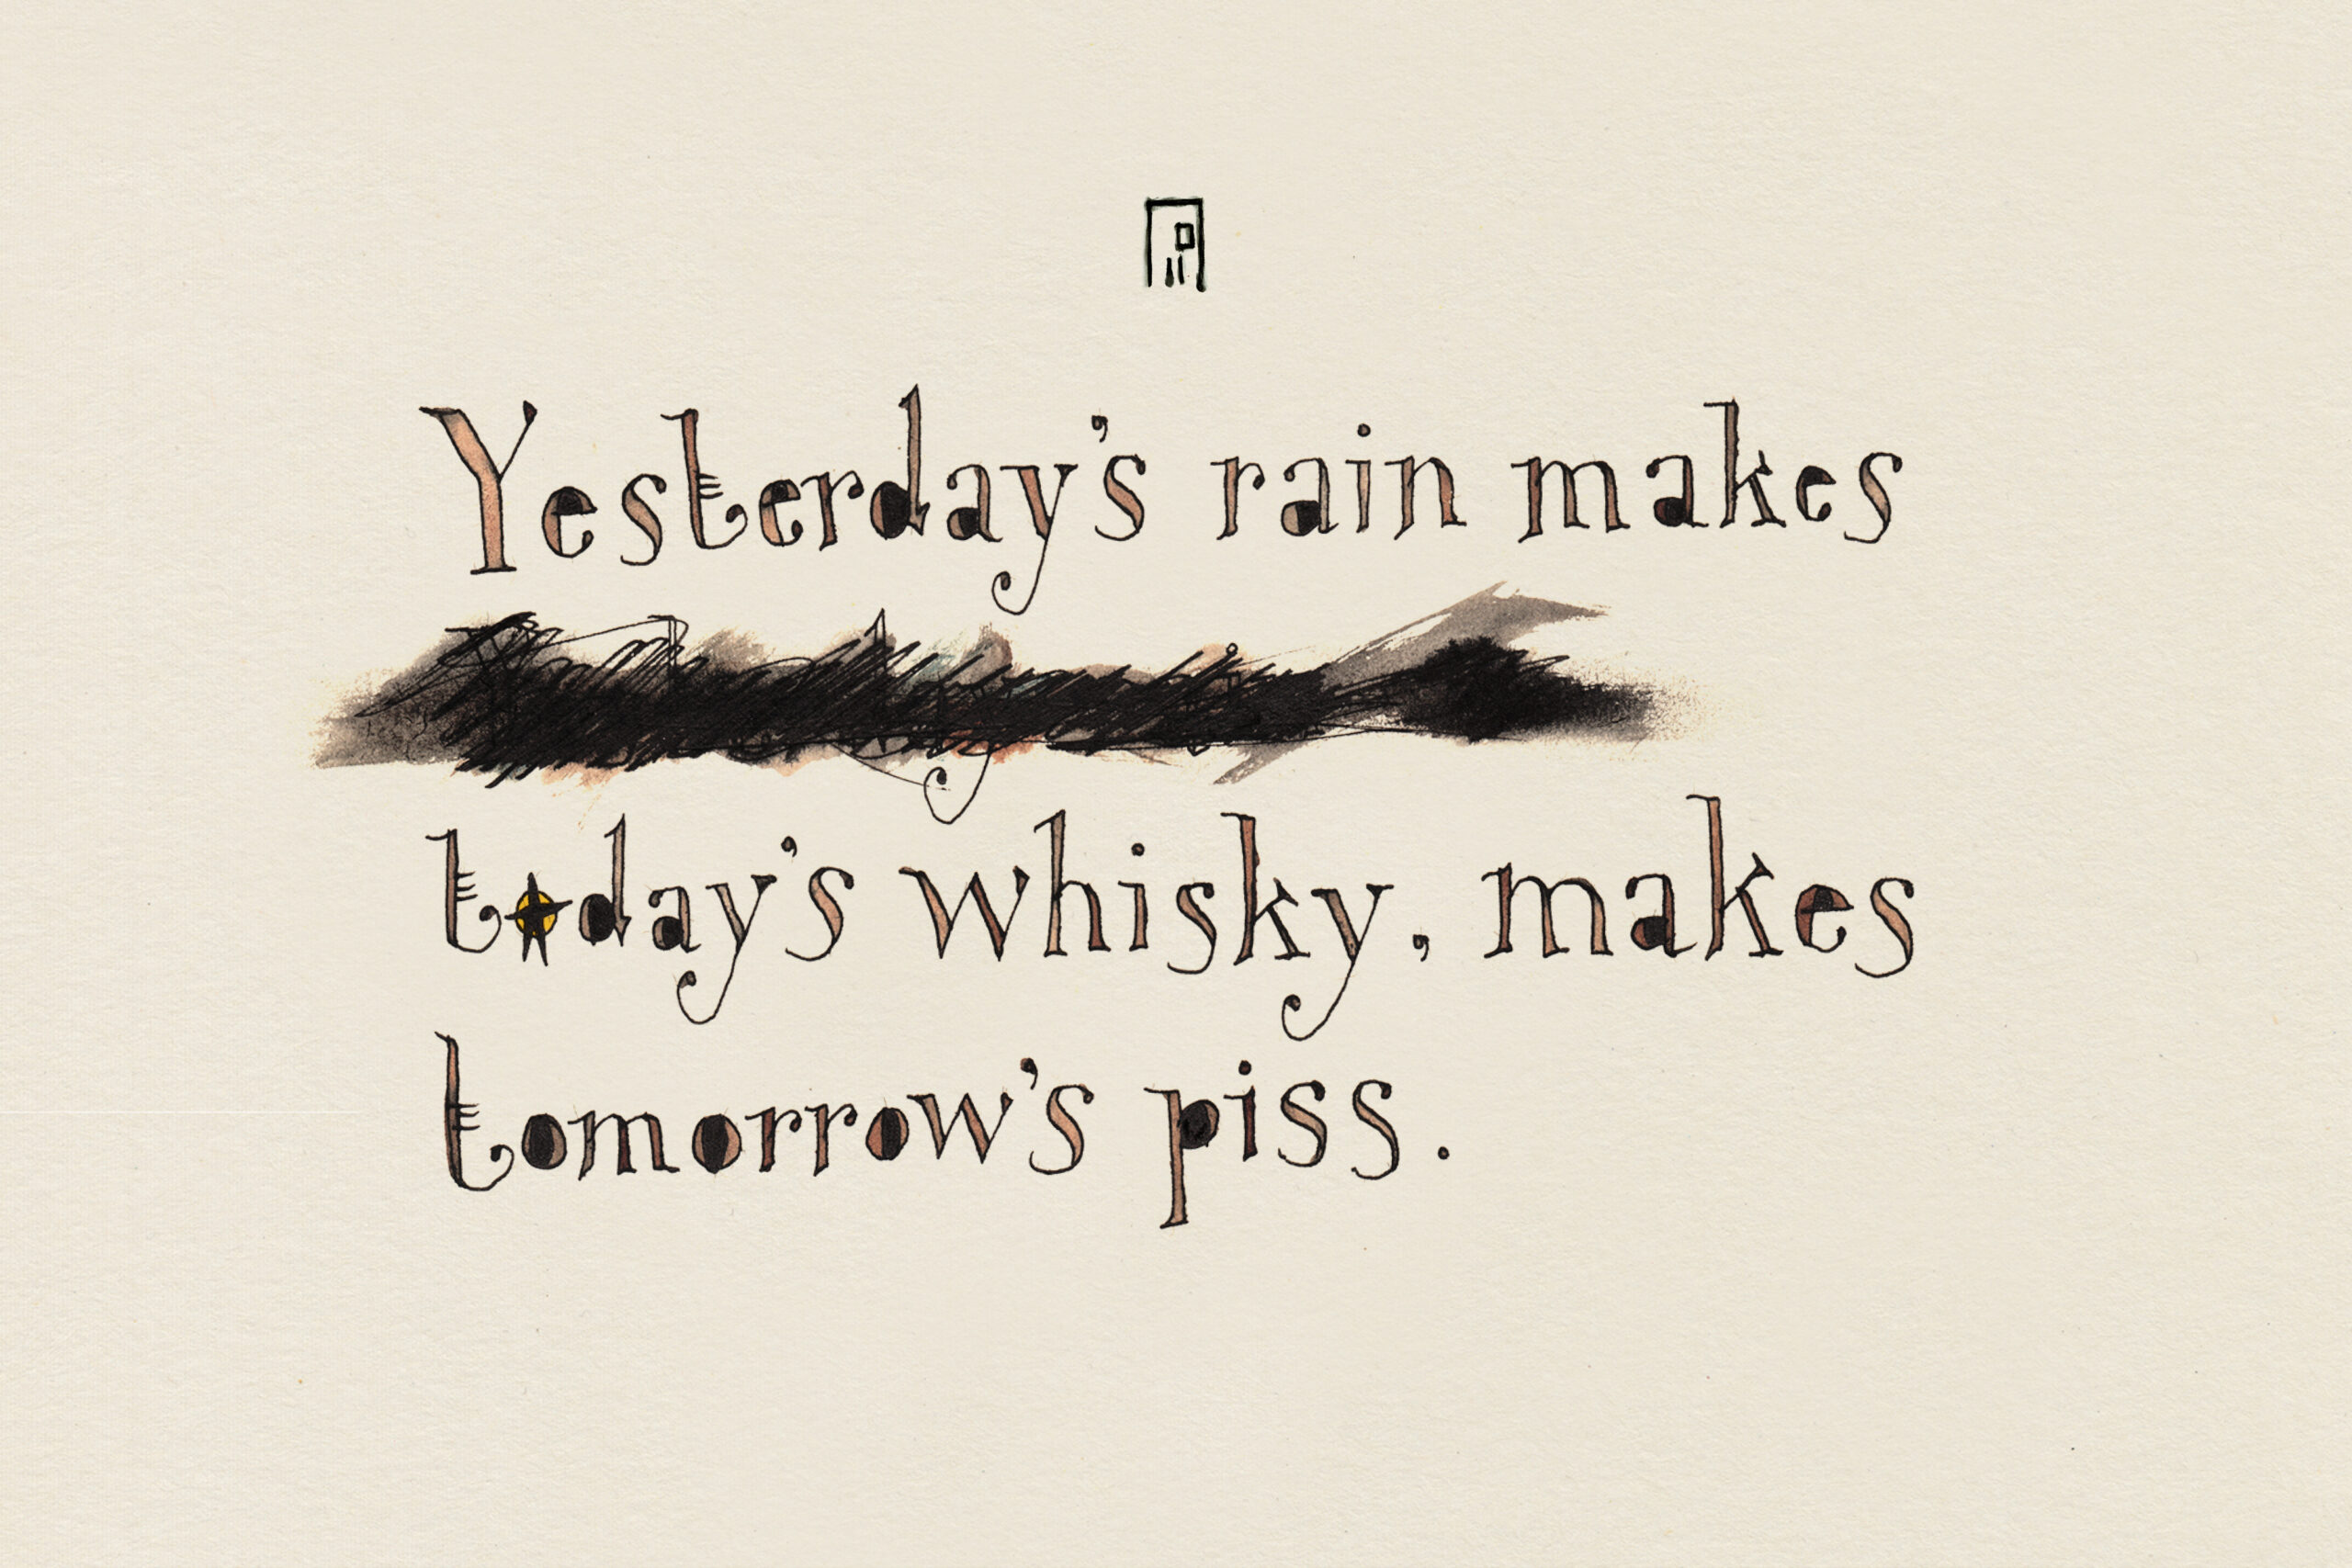 Yesterday's rain makes
today's whisky, makes
tomorrow's piss.